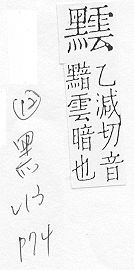 乙減切音
黯雲暗也
⑫
黑
V13
P74